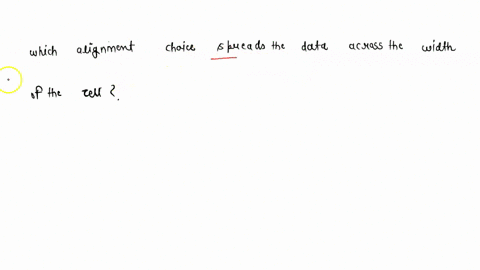 which alignment choice spreads the data across the width
of the cell ?